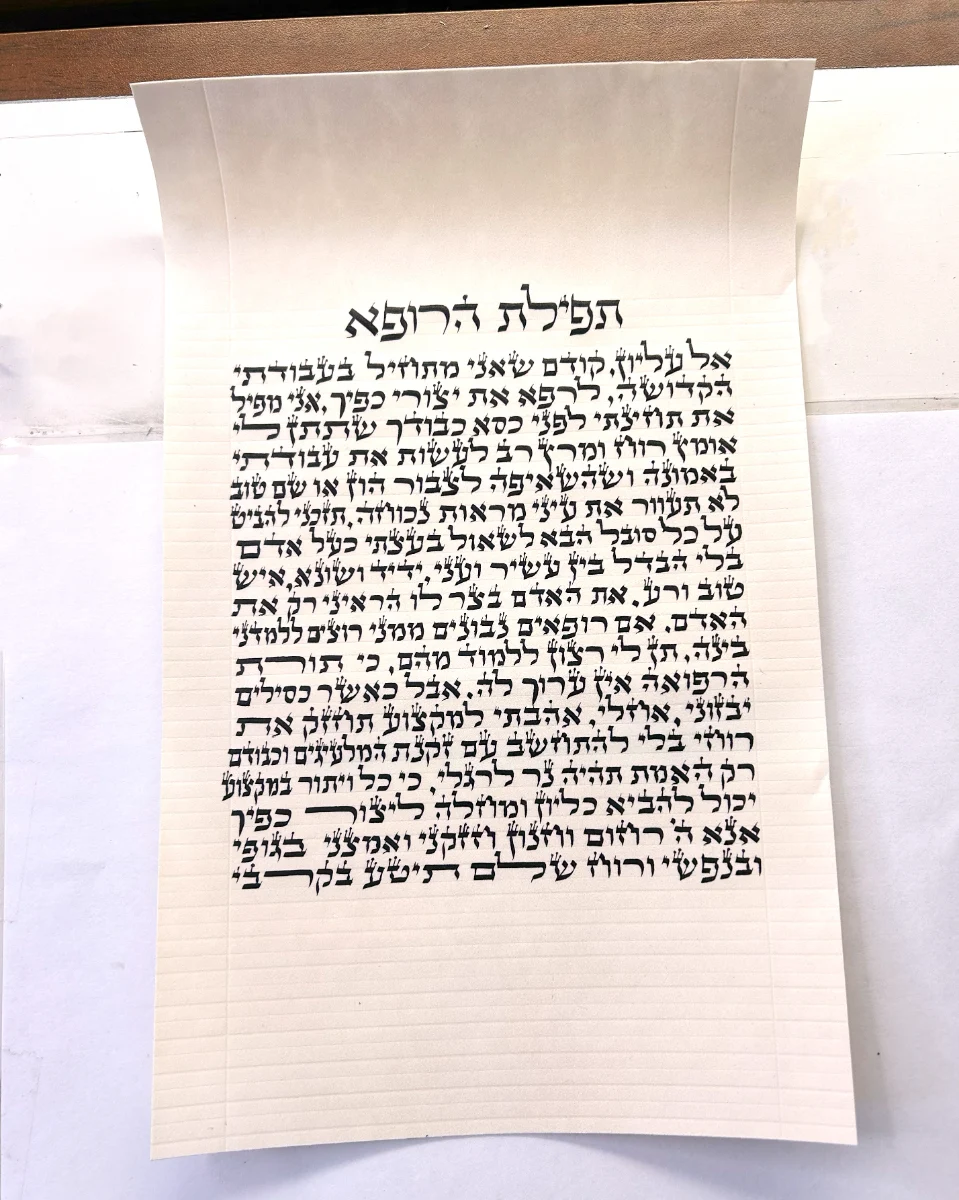 תפילת הרופא
אל עליון, קודם שאני מתחיל בעבודתי
הקדושה, לרפא את יצורי כפיך, אני מפיל
את תחינתי לפני כסא כבודך שתתן לי
אומץ רוח ומרץ רב לעשות את עבודתי
באמונה ושהשאיפה לצבור הון או שם טוב
לא תעוור את עיני מראות נכוחה. תזכני להביט
על כל סובל הבא לשאול בעצתי כעל אדם
בלי הבדל בין עשיר ועני, ידיד ושונא, איש
טוב ורע. את האדם בצר לו הראיני רק את
האדם. אם רופאים נבונים ממני רוצים ללמדני
בינה, תן לי רצון ללמוד מהם, כי תורת
הרפואה אין ערוך לה. אבל כאשר כסילים
יבזוני, אוחלי, אהבתי למקצוע תחזק את
רוחי בלי להתחשב עם זקנת המלעיגים וכבודם
רק האמת תהיה נר לרגלי, כי כל ויתור במקצוע
יכול להביא כליון ומחלה ליצור כפיך
אנא ה' רחום וחנון וחזקני ואמצני בגופי
ובנפשי ורוח שלם תיטע בקרבי